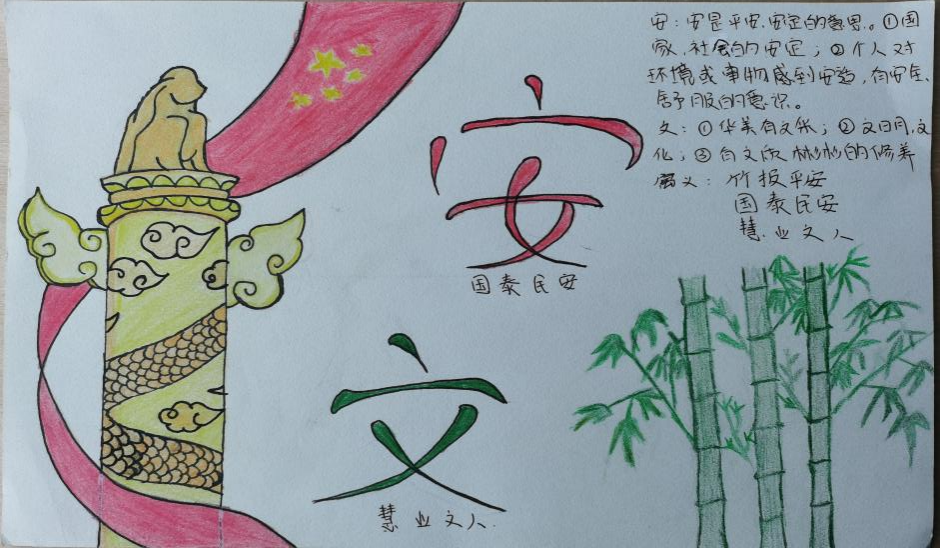 安：安是平安、安定的意思。①国
家、社会的安定；②个人对
环境或事物感到安适，有安全、
舒服的意识。
文：①华美有文采；②文明，文
化；③有文质彬彬的修养
寓义：竹报平安
国泰民安
慧业文人
安
国泰民安
文
慧业文人.